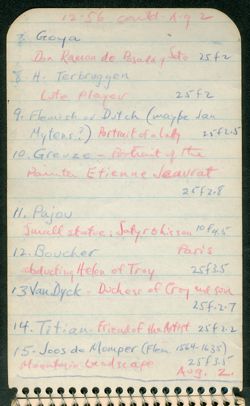 12:56 could
7. Goya
Don Ramon de Posada y Soto 25 f2
8 H. Terbruggen
Lute Player 25 f2
9. Flemish or Dutch (maybe Jan
Mytens?) Portrait of a Lady 25 f2.5
10. Greuze - Portrait of the
Painter Etienne Jeaurat
25 f2.8
11. Pajou
Small statue: Satyr & 10 f4.5
12. Boucher Paris
abducting Helen of Troy 25 f3.5
13 Van Dyck - Duchess of Croy and son
25 f2.7
14. Titian - Friend of the Artist 25 f2.2
15 - Joos de Momper (Flem 1564-1635)
Mountain Landscape 25 f3.5
Aug. 2.